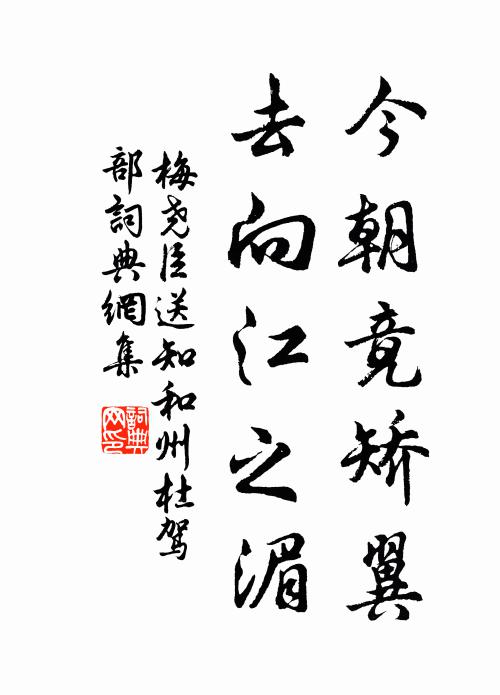 今朝竟矫翼
去向江之湄
梅尧臣送知和州杜驾
部詞典網集
詞典网印